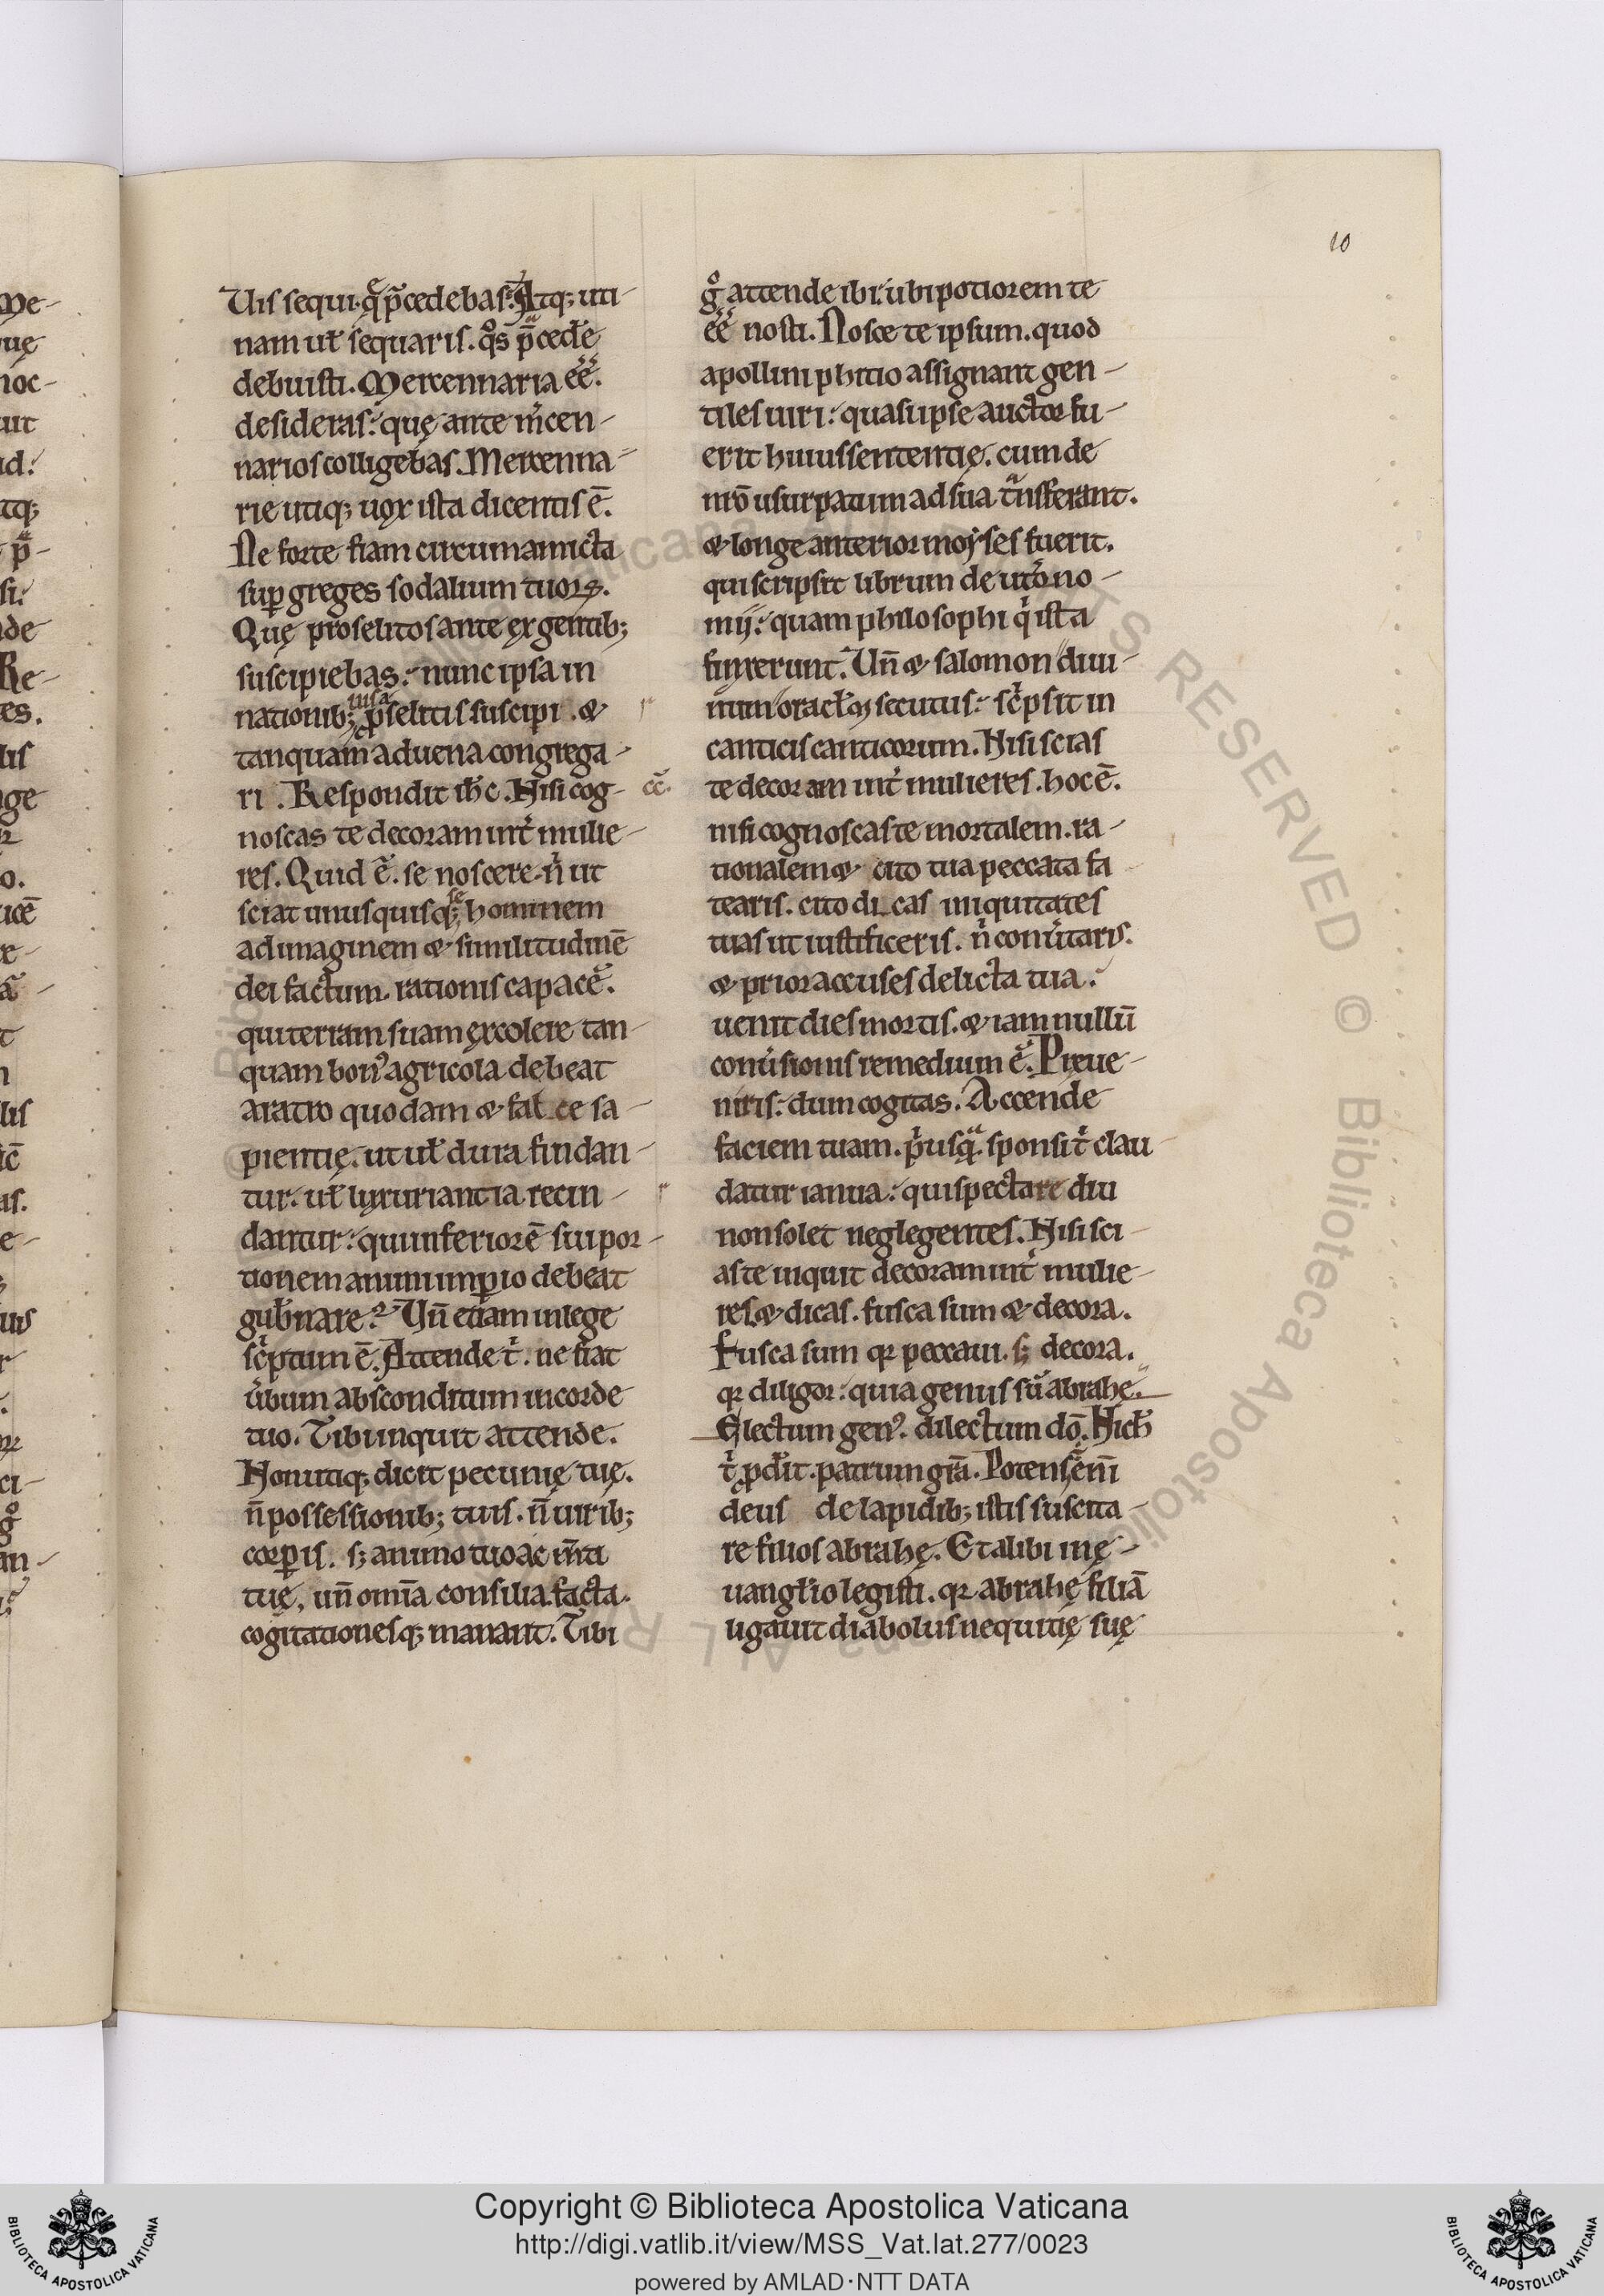 10
Uis sequi. q̄ p̄cedebas. Atq; uti-
nam ul̄ sequaris. q̊s p̄ceder̄e
debuisti. Mercennaria eē̄.
desideras: quę ante m̄cen-
narios colligebas. Mercenna-
rie utiq; uox ista dicentis ē.
Ne forte fiam circumamicta
sup̱ greges sodalium tuoꝝ.
Quę proselitos ante ex gentib;
suscipiebas: nunc ipsa in
nationib; tuis a ꝓselitis suscipi. &
tanquam aduena congrega-
ri. Respondit ih̄c. Nisi cog-
noscas te decoram int̄ mulie-
res. Quid ē. se noscere. n̄ ut
sciat unusquisq; se hominem
ad imaginem & similitudinē
dei factum. rationis capacē.
qui terram suam excolere tan-
quam bonꝰ agricola debeat
aratro quodam & falce sa-
pientię. ut ul̄ dura findan-
tur. ul̄ luxuriantia recin-
dantur: qui inferiorē sui por-
tionem animi imꝑio debeat
gub̄nare? Un̄ etiam in lege
sc̄ptum ē. Attende t̄. ne fiat
ūbum absconditum in corde
tuo. Tibi inquit attende.
Non utiq; dicit pecunię tuę.
n̄ possessionib; tuis. n̄ uirib;
corꝑis. s; animo tuo ac m̄ti
tuę, un̄ om̄ia consilia. facta.
cogitationesq; manant. Tibi
g̊ attende ibi: ubi potiorem te
eē̄ nosti. Nosce te ipsum. quod
apollini phitio assignant gen-
tiles uiri: quasi ipse auctor fu-
erit huius sententię. cum de
nr̄o usurpatum ad sua t̄nsferant.
& longe anterior moyses fuerit.
qui scripsit librum deut̄ono-
mij: quam philosophi q̄ ista
finxerunt. Un̄ & salomon diui-
num oracl̄m secutus: sc̄psit in
canticis canticorum. Nisi scias
te decoram int̄ mulieres. hoc ē.
nisi cognoscas te mortalem. ra-
tionalem & cito tua peccata fa
tearis. cito dicas iniquitates
tuas ut iustificeris. n̄ conūtaris.
& prior accuses delicta tua:
uenit dies mortis. & iam nullū
conūsionis remedium ē. Preue-
niris: dum cogitas. Accende
faciem tuam. p̄usq̄. sponsi t̄ clau
datur ianua: qui spectare diu
non solet neglegentes. Nisi sci-
as te inquit decoram int̄ mulie-
res. & dicas. fusca sum & decora.
Fusca sum qꝛ peccaui. s; decora.
qꝛ diligor: quia genus sū abrahę.
Electum genꝰ. dilectum dō. Nich̄
t̄ ꝓd̄it. patrum gr̄a. Potens ē eni̅
deus de lapidib; istis suscita-
re filios abrahę. Et alibi in ę-
uangl̄io legisti. qꝛ abrahę filiā
ligauit diabolus nequitię suę
Copyright © Biblioteca Apostolica Vaticana
http://digi.vatlib.it/view/MSS_Vat.lat.277/0023
powered by AMLAD·NTT DATA